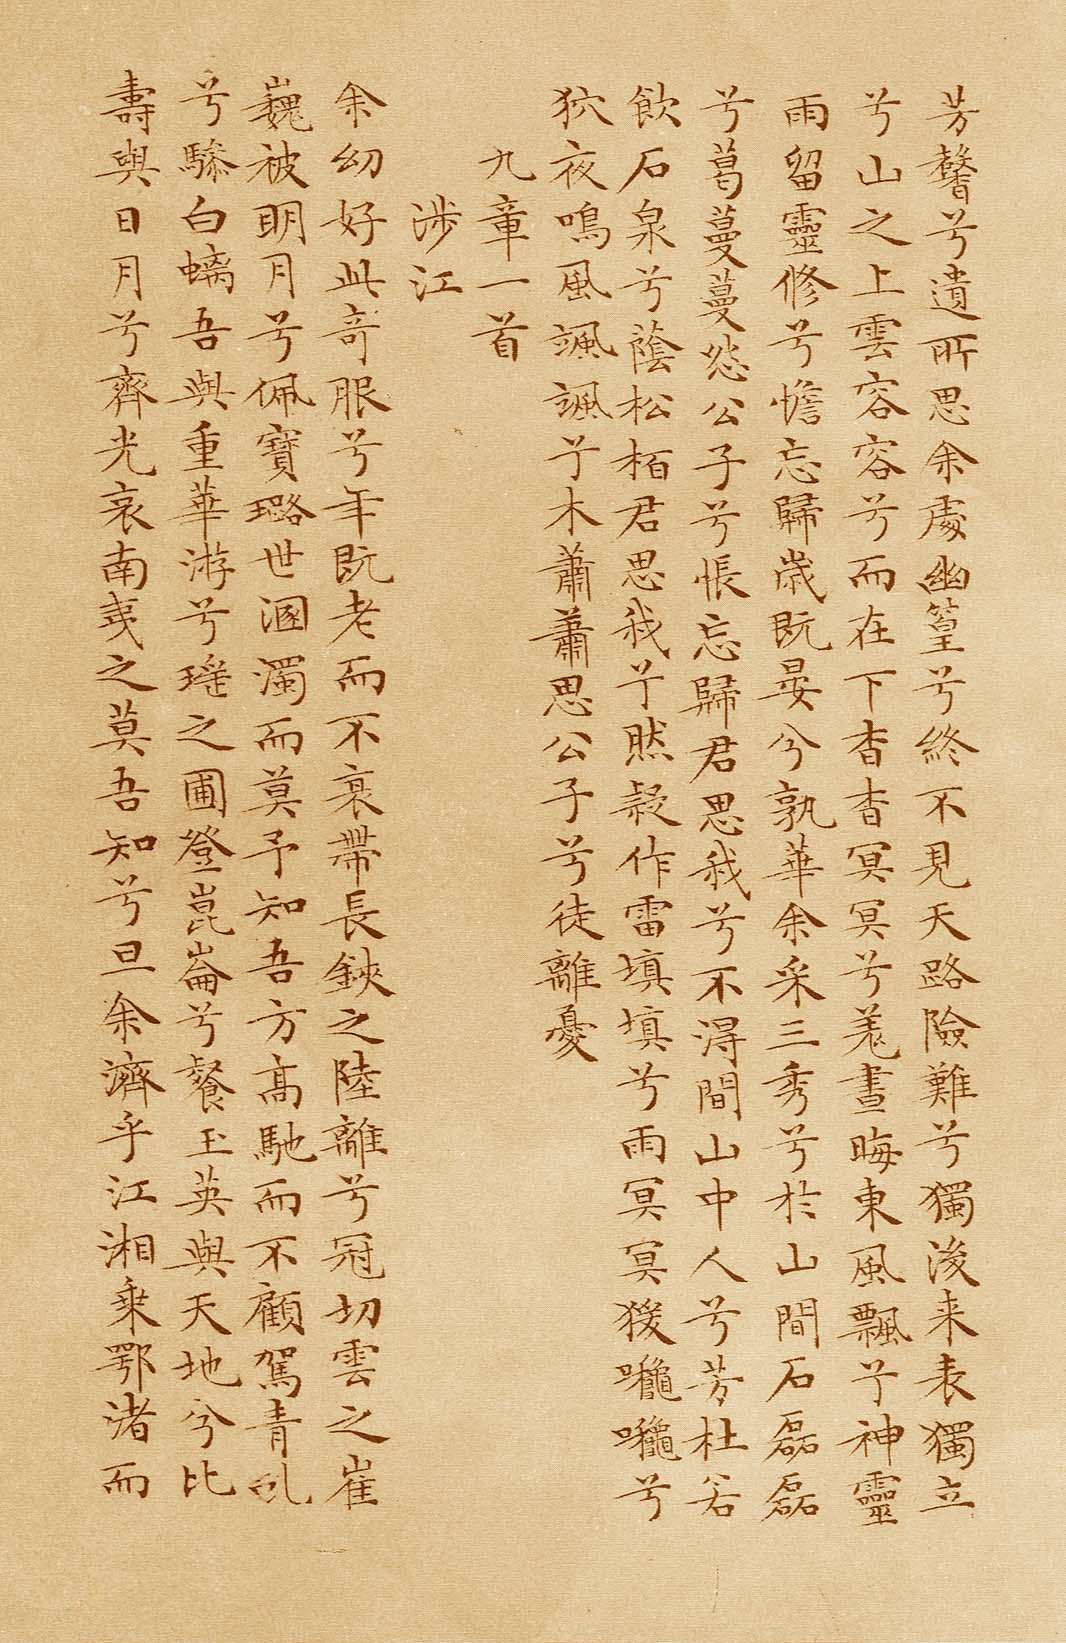 芳馨兮遺所思余處幽篁兮終不見天路險難兮獨後来表獨立
兮山之上雲容容兮而在下杳杳冥冥兮羌晝晦東風飄兮神靈
雨留靈修兮憺忘歸歲既晏兮孰華余采三秀兮於山間石磊磊
兮葛蔓蔓怨公子兮悵忘歸君思我兮不得間山中人兮芳杜若
飲石泉兮蔭松栢君思我兮然疑作雷填填兮雨冥冥猨啾啾兮
狖夜鳴風颯颯兮木蕭蕭思公子兮徒離憂
九章一首
涉江
余幼好此奇服兮年既老而不衰帶長鋏之陸離兮冠切雲之崔
巍被明月兮佩寶璐世溷濁而莫予知吾方高馳而不顧駕青虬
兮驂白螭吾與重華游兮瑤之圃登崑崙兮餐玉英與天地兮比
壽與日月兮齊光哀南夷之莫吾知兮旦余濟乎江湘乘鄂渚而